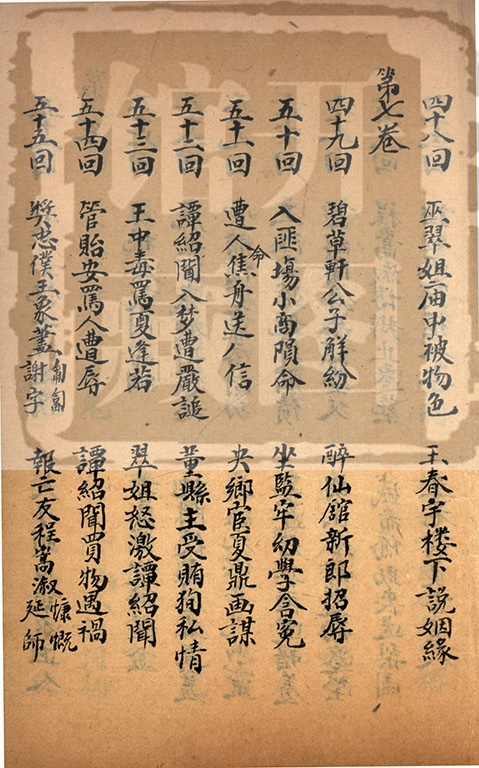 四十八回 巫翠姐庙中被物色 王春宇楼下說姻緣
第七卷
四十九回 碧草軒公子解紛 醉仙舘新郎招辱
五十回 入匪塲小商隕命 坐監牢幼學含冤
五十一回 遭人命焦丹送信 央鄉宦夏鼎画謀
五十二回 譚紹聞入梦遭嚴譴 董縣主受賄狥私情
五十三回 王中毒罵夏逢若 翠姐怒激譚紹聞
五十四回 管貽安罵人遭辱 譚紹聞買物遇禍
五十五回 奬忠僕王象藎匍匐謝字 報亡友程嵩淑慷慨延師